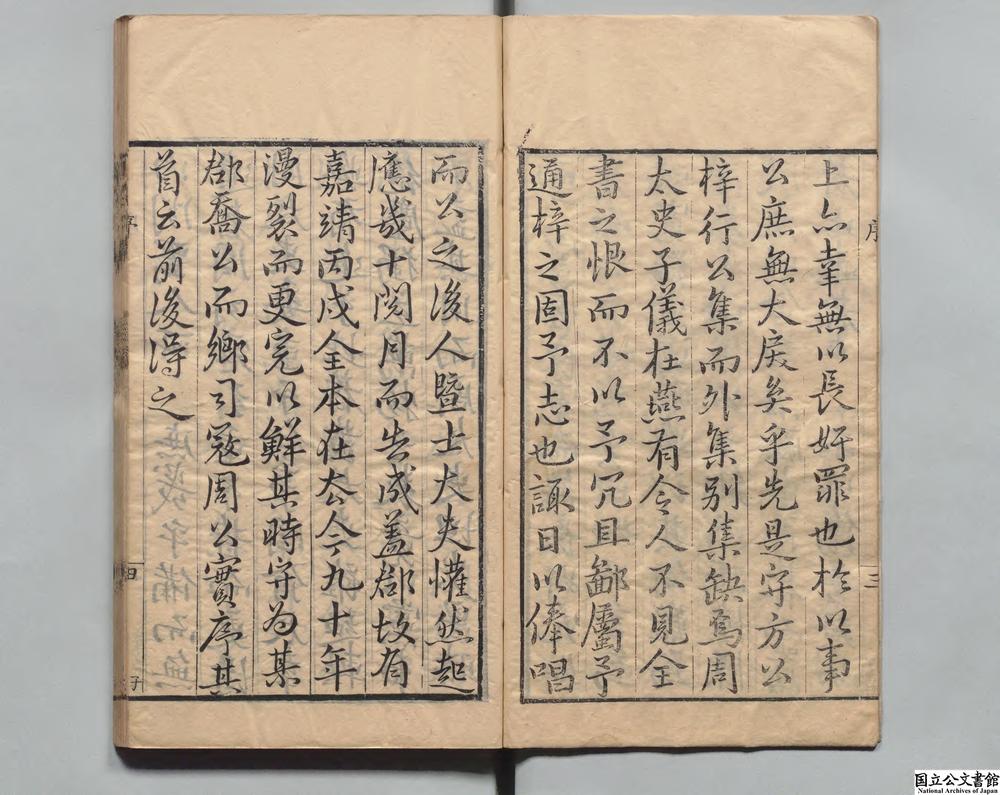 上亦幸無以長奸罪也於以事
公庶無大戾矣乎先是守方公
梓行公集而外集別集缺焉周
太史子儀在燕有令人不見全
書之恨而不以予冗且鄙屬予
通梓之固予志也諏日以俸唱
序
三
而公之後人暨士大夫懽然起
應幾十閱月而告成盖郡故有
嘉靖丙戌全本在太今九十年
漫裂而更完以鮮其時守為某
郡喬公而鄉司寇周公實序其
首云前後得之
序
四
国立公文書館
National Archives of Japan